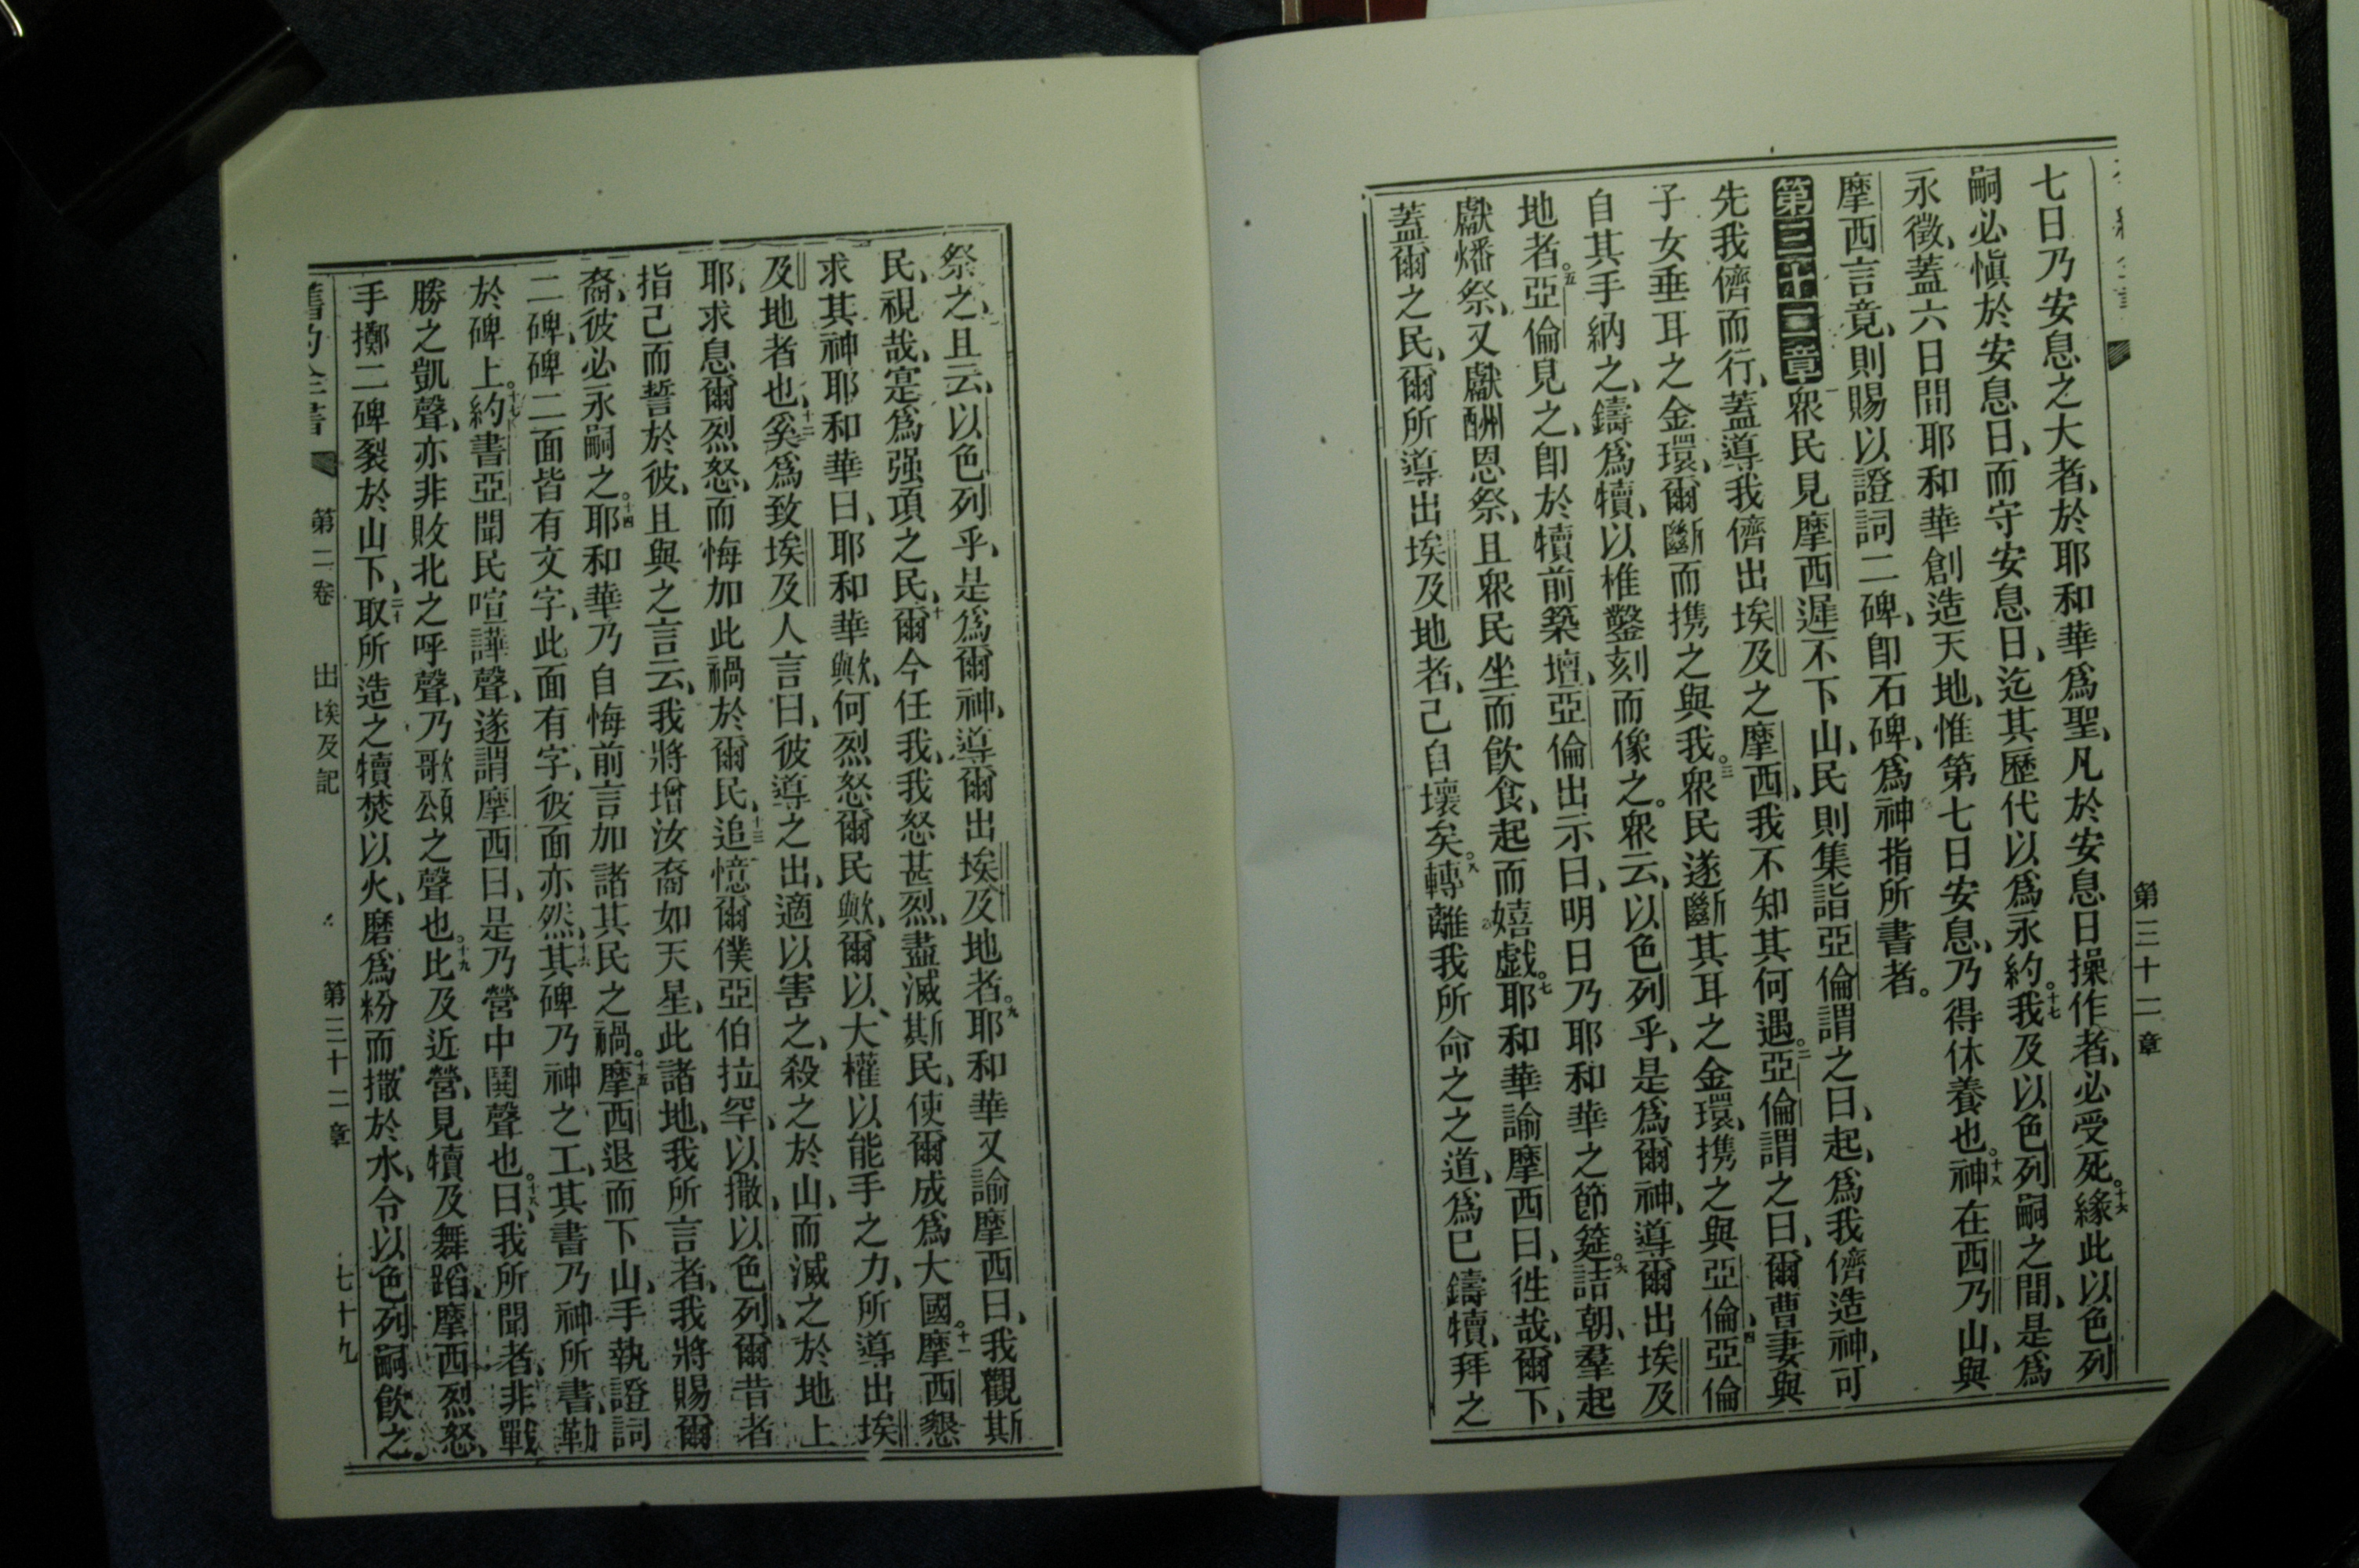 第三十二章
七日乃安息之大者、於耶和華爲聖、凡於安息日操作者、必受死。十六緣此以色列
嗣必愼於安息日、而守安息日、迄其歷代以爲永約。十七我及以色列嗣之間、是爲
永徵、蓋六日間耶和華創造天地、惟第七日安息、乃得休養也。十八神在西乃山、與
摩西言竟、則賜以證詞二碑、卽石碑、爲神指所書者。
第三十二章一衆民見摩西遲不下山、民則集詣亞倫謂之曰、起、爲我儕造神、可
先我儕而行、蓋導我儕出埃及之摩西、我不知其何遇。二亞倫謂之曰、爾曹妻與
子女垂耳之金環、爾斷而携之與我。三衆民遂斷其耳之金環、携之與亞倫、四亞倫
自其手納之、鑄爲犢、以椎鑿刻而像之。衆云、以色列乎、是爲爾神、導爾出埃及
地者。五亞倫見之、卽於犢前築壇、亞倫出示曰、明日乃耶和華之節筵。六詰朝、羣起
獻燔祭、又獻酬恩祭、且衆民坐而飮食、起而嬉戲。七耶和華諭摩西曰、徃哉、爾下、
蓋爾之民、爾所導出埃及地者、己自壞矣。八轉離我所命之之道、爲巳鑄犢、拜之
祭之、且云、以色列乎、是爲爾神、導爾出埃及地者。九耶和華又諭摩西曰、我觀斯
民、視哉、寔爲强項之民、十爾今任我、我怒甚烈、盡滅斯民、使爾成爲大國。十一摩西懇
求其神耶和華曰、耶和華歟、何烈怒爾民歟、爾以大權以能手之力、所導出埃
及地者也、十二奚爲致埃及人言曰、彼導之出、適以害之、殺之於山、而滅之於地上
耶、求息爾烈怒、而悔加此禍於爾民、十三追憶爾僕亞伯拉罕、以撒、以色列、爾昔者
指己而誓於彼、且與之言云、我將增汝裔如天星、此諸地、我所言者、我將賜爾
裔、彼必永嗣之。十四耶和華乃自悔前言加諸其民之禍。十五摩西退而下山、手執證詞
二碑、碑二面皆有文字、此面有字、彼面亦然、十六其碑乃神之工、其書乃神所書、勒
於碑上。十七約書亞聞民喧譁聲、遂謂摩西曰、是乃營中鬨聲也。十八曰、我所聞者、非戰
勝之凱聲、亦非敗北之呼聲、乃歌頌之聲也。十九比及近營、見犢及舞蹈、摩西烈怒、
手擲二碑裂於山下、二十取所造之犢焚以火、磨爲粉而撒於水、令以色列嗣飮之。
舊約全書 第二卷 出埃及記 第三十二章 七十九